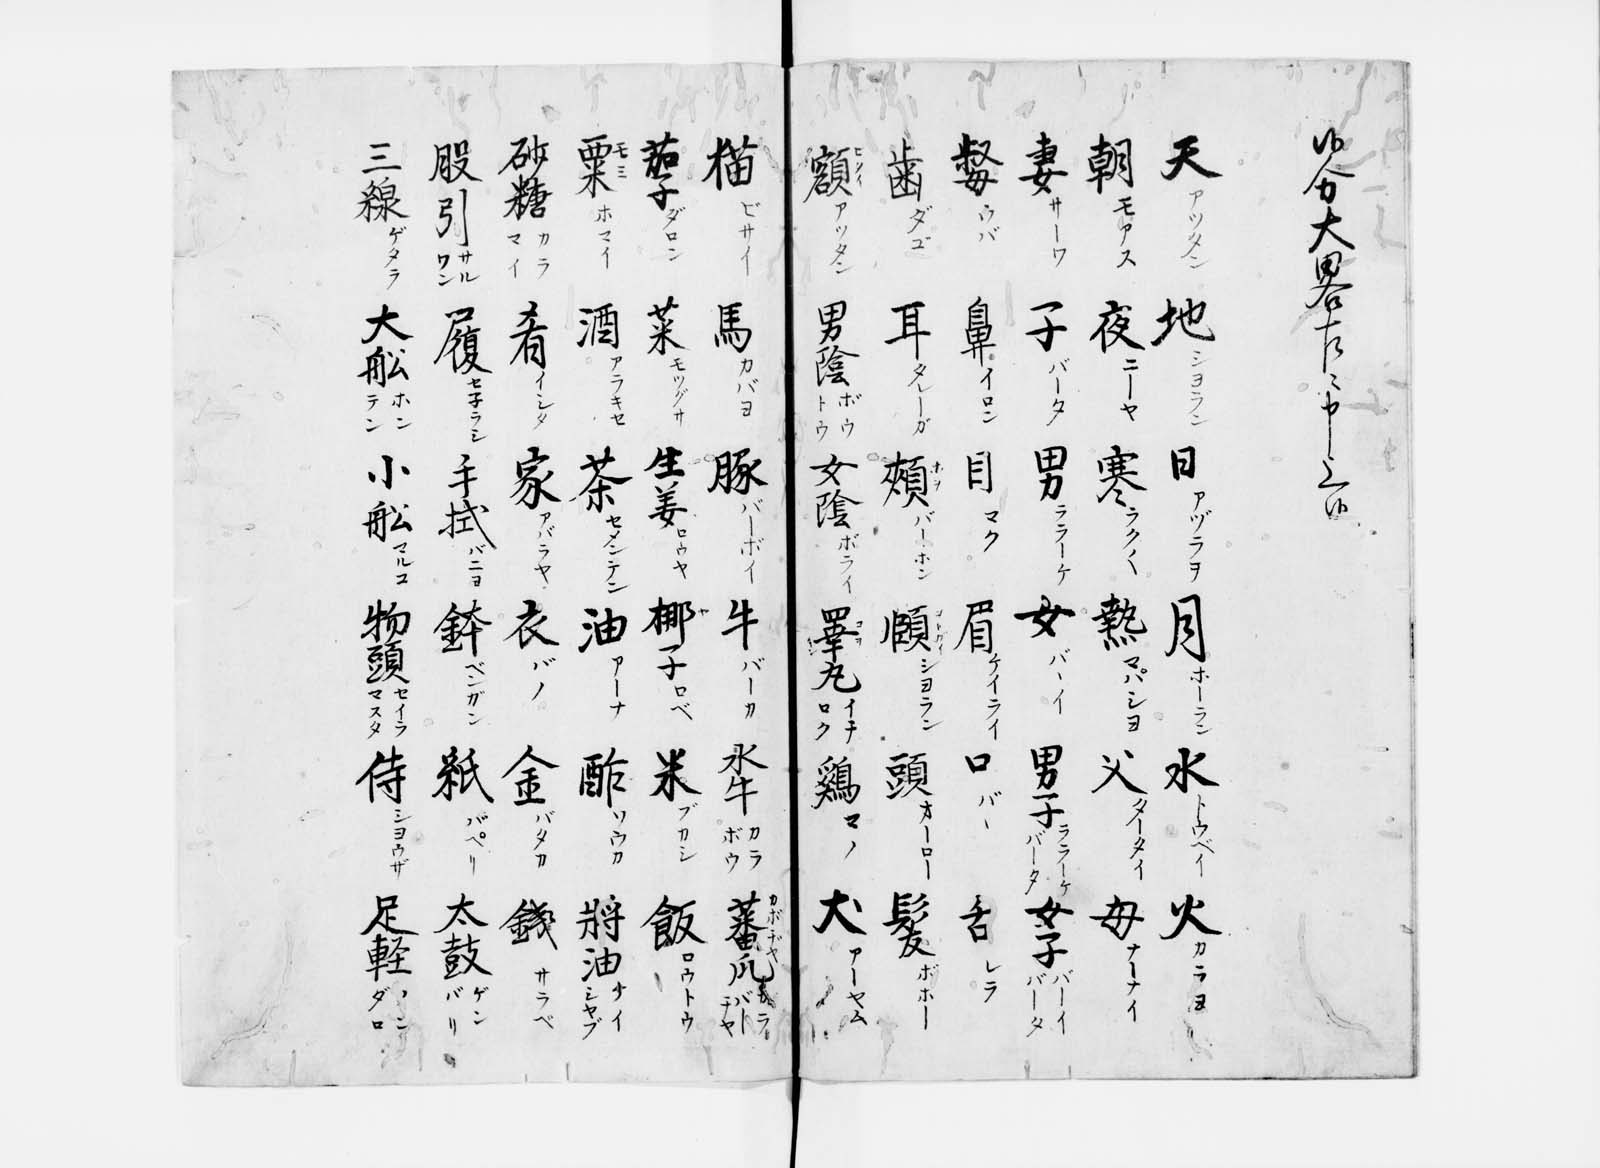 天 アツタン 地 シヨラン 日 アヅラヲ 月 ホーラン 水 トウベイ 火 カラヨ
朝 モアス 夜 ニーヤ 寒 ラクノ〱 熱 マパシヨ 父 タータイ 母 ナーナイ
妻 サーワ 子 バータ 男 ララーケ 女 バヽイ 男子 ララーケバータ 女子 バーイバータ
嫛 ウバ 鼻 イロン 目 マク 眉 ケイライ 口 バヽ 舌 レラ
歯 ダユ 耳 タレーガ 頬 ホヲ バーホン 頤 シヨラン 頭 オーロー 髪 ボホー
額 ヒタイ アツタン 男陰 ボウトウ 女陰 ボライ 睾丸 イチロク 鶏 マノ 犬 アーヤム
猫 ビサイ 馬 カバヨ 豚 バーボイ 牛 バーカ 水牛 カラボウ 蕃瓜 カボチヤ カラバーチヤ
茄子 ダロン 菜 モツグサ 生姜 ロウヤ 椰子 ヤ ロベ 米 ブカシ 飯 ロウトウ
粟 モミ ホマイ 酒 アラキセ 茶 セメンテン 油 アーナ 酢 ソウカ 醤油 タイシヤブ
砂糖 カラマイ 肴 イシタ 家 アバラヤ 衣 バノ 金 バタカ 銭 サラベ
股引 サルワン 履 セ子ラシ 手拭 バニヨ 鉢 ベンガン 紙 バペリ 太鼓 ゲンバリ
三線 ゲタラ 大船 ホンテン 小船 マルコ 物頭 セイラマスタ 侍 シヨウザ 足軽 ノンダロ